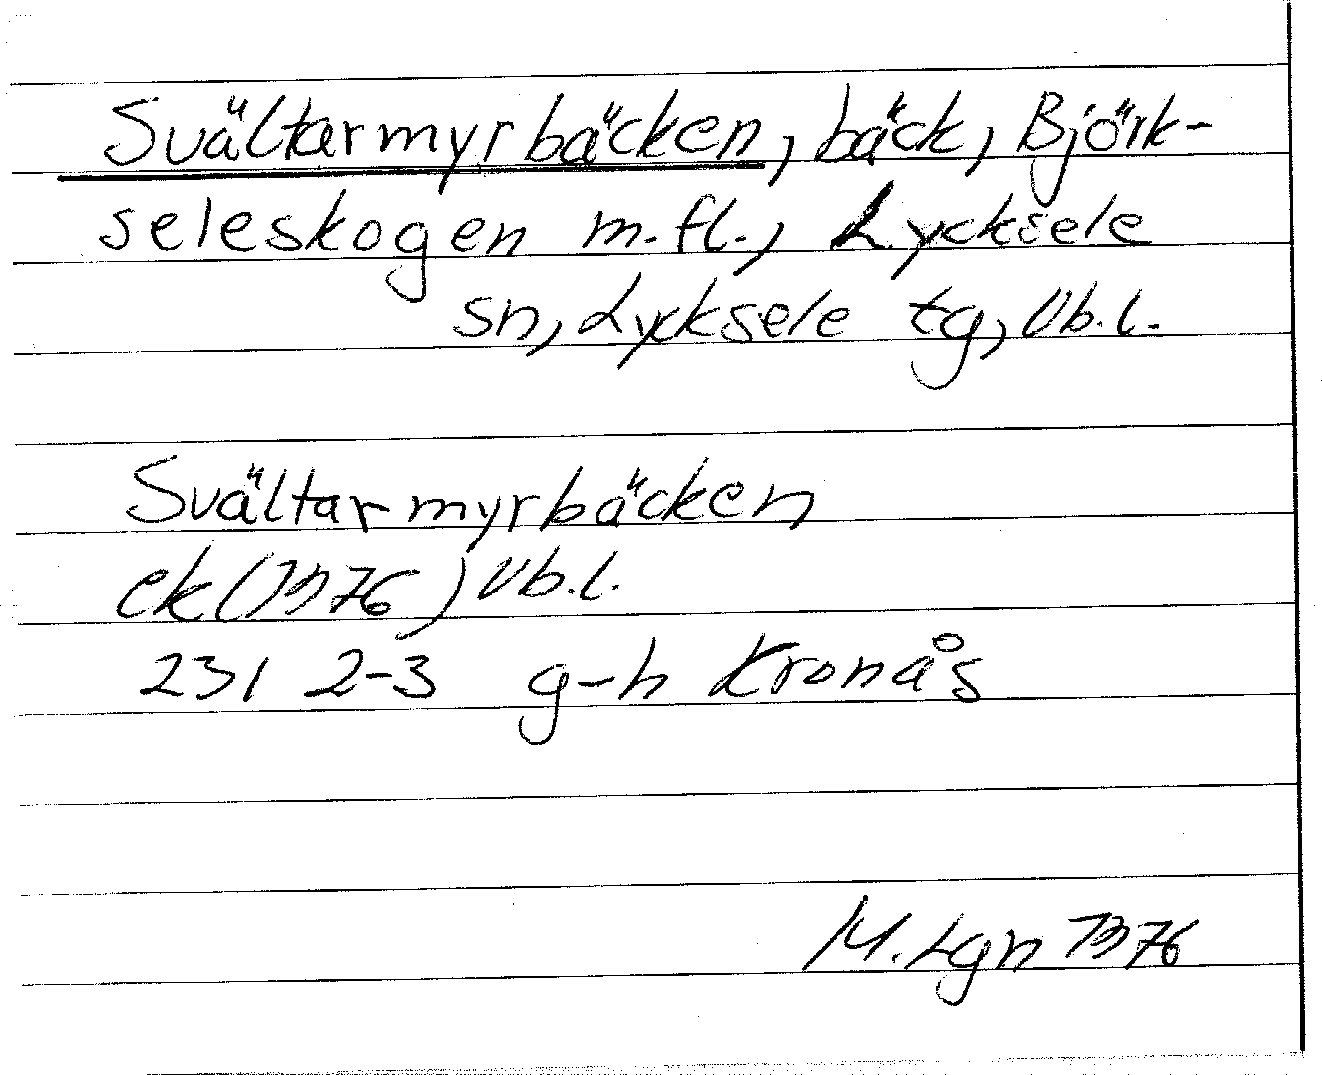 Svältarmyrbäcken, bäck, Björk-
seleskogen m.fl., Lycksele
sn, Lycksele tg, Vb.l.
Svältarmyrbäcken
ek (1976) Vb.l.
231 2-3 g-h Kronås
M. Lgn 1976